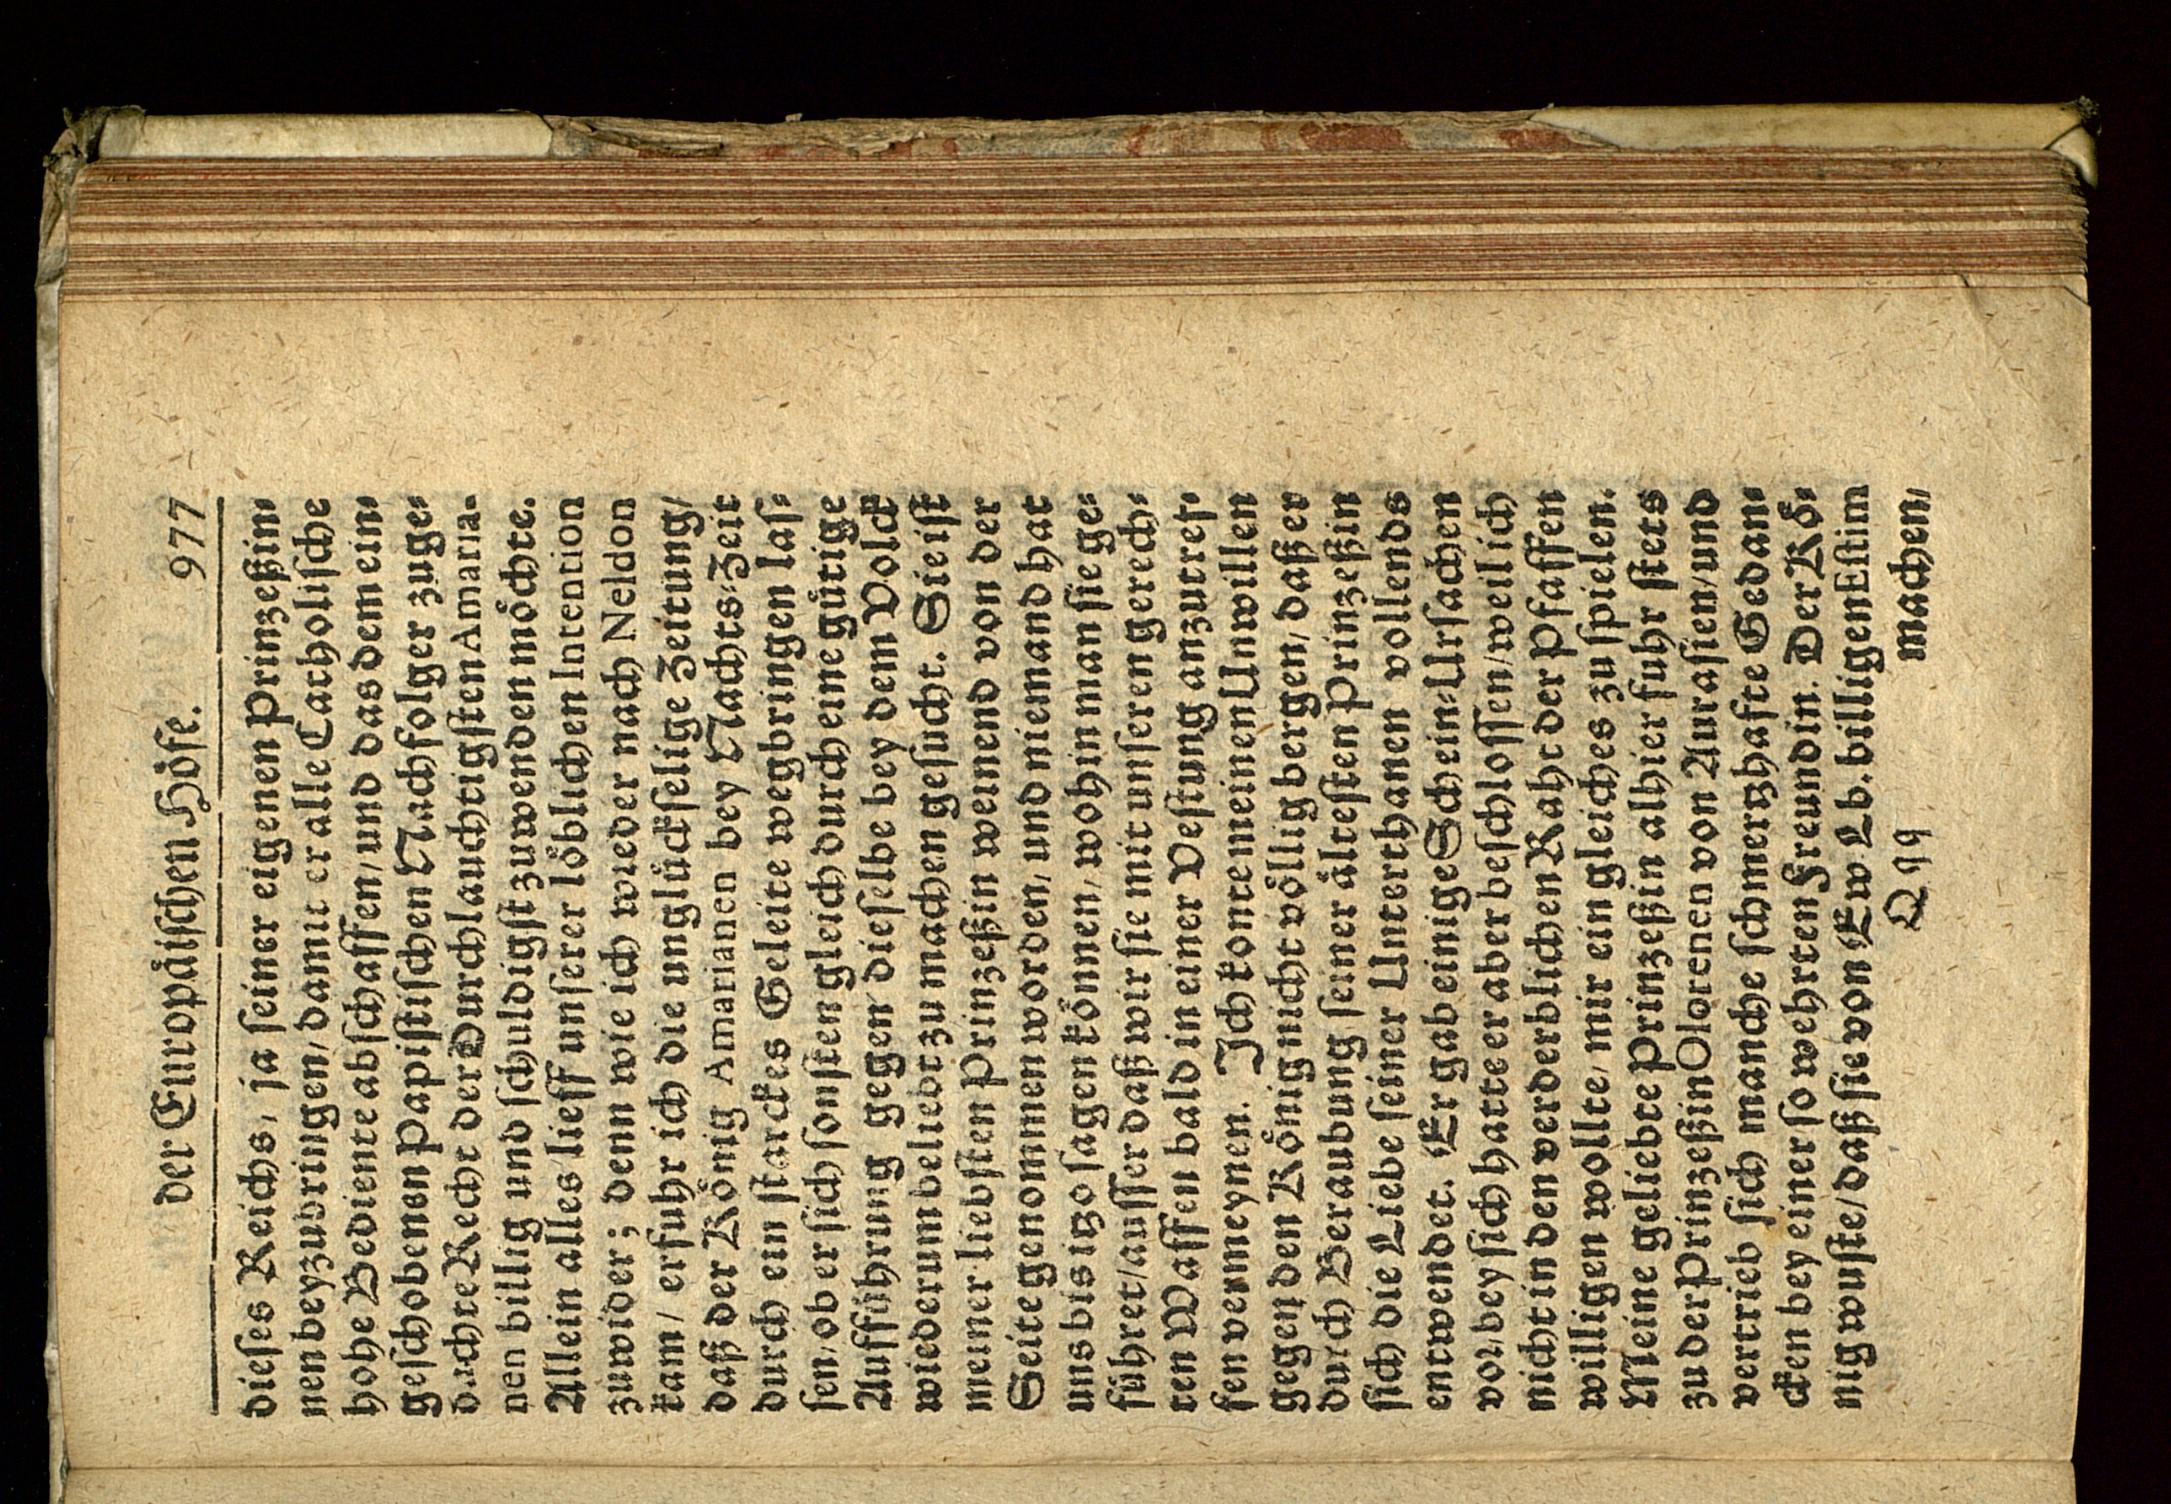 der Europäischen Höfe. 977
dieses Reichs, ja seiner eigenen Prinzeßin⸗
nen beyzubringen/ damit er alle Catholische
hohe Bediente abschaffen/ und das dem ein⸗
geschobenen Papistischen Nachfolger zuge⸗
dachte Recht der Durchlauchtigsten Amaria-
nen billig und schuldigst zuwenden möchte.
Allein alles lieff unserer löblichen Intention
zuwider; denn wie ich wieder nach Neldon
kam/ erfuhr ich die unglückselige Zeitung/
daß der König Amarianen bey Nachts⸗Zeit
durch ein starckes Geleite wegbringen las⸗
sen/ ob er sich sonsten gleich durch eine gütige
Aufführung gegen dieselbe bey dem Volck
wiederum beliebt zu machen gesucht. Sie ist
meiner liebsten Prinzeßin weinend von der
Seite genommen worden/ und niemand hat
uns bis itzo sagen können/ wohin man sie ge⸗
führet/ ausser daß wir sie mit unseren gerech⸗
ten Waffen bald in einer Vestung anzutref⸗
fen vermeynen. Ich konte meinen Unwillen
gegen den König nicht völlig bergen/ daß er
durch Beraubung seiner ältesten Prinzeßin
sich die Liebe seiner Unterthanen vollends
entwendet. Er gab einige Schein⸗Ursachen
vor/ bey sich hatte er aber beschlossen/ weil ich
nicht in den verderblichen Raht der Pfaffen
willigen wollte/ mir ein gleiches zu spielen.
Meine geliebte Prinzeßin alhier fuhr stets
zu der Prinzeßin Olorenen von Aurasien/ und
vertrieb sich manche schmertzhafte Gedan⸗
cken bey einer so wehrten Freundin. Der Kö⸗
nig wuste/ daß sie von Ew. Lb. billigen Estim
Qqq machen/